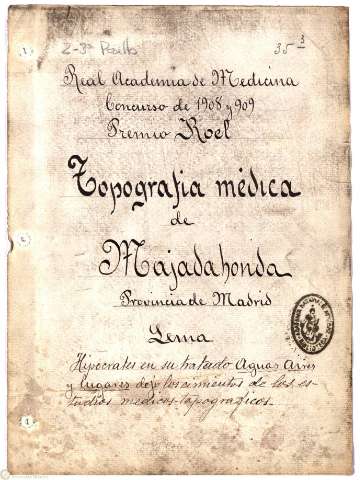 Z-3ª
35 3
Real Academia de Medicina
Concurso de 1908 y 909
Premio Roel
Topografia médica
de
Majadahonda
Provincia de Madrid
Lema
Hipocrates en su tratado Aguas Aires
y lugares dejo los cimientos de los es-
tudios medicos-topograficos.